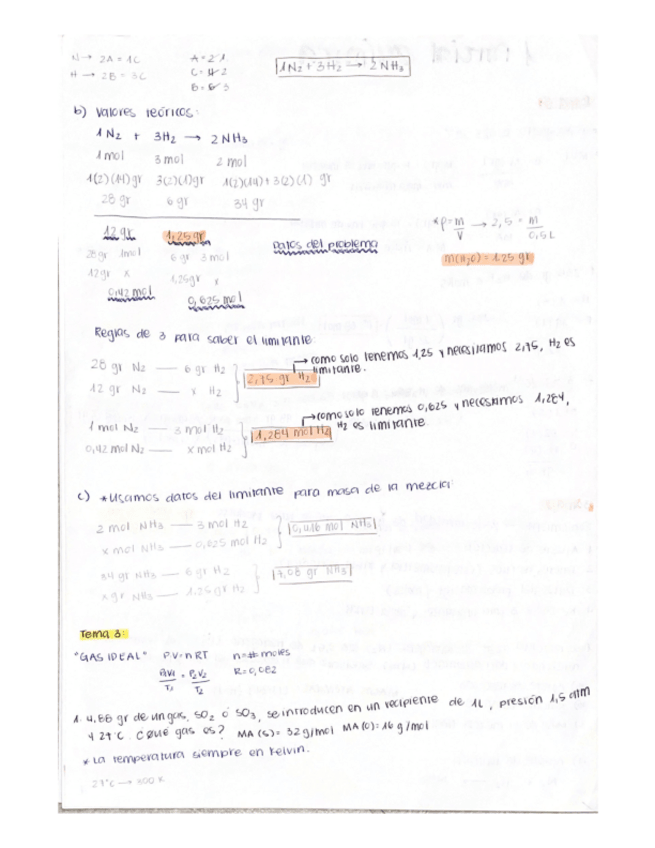 N → 2A = 1C    A = 2 1
H → 2B = 3C    C = 2
B = 6 3
1N₂ + 3H₂ → 2NH₃
b) Valores teóricos:
1N₂ + 3H₂ → 2NH₃
1 mol    3 mol    2 mol
1(2)(14)gr    3(2)(1)gr    1(2)(14)+3(2)(1) gr
28 gr    6 gr    34 gr
12 gr    1,25 gr    Datos del problema
28gr 1mol    6 gr 3 mol
12gr x    1,25gr x
0,42 mol    0,625 mol
*ρ = m/V → 2,5 = m/0,5L
m(H₂O) = 1,25 gr
Reglas de 3 para saber el limitante:
28 gr N₂ — 6 gr H₂
12 gr N₂ — x H₂
2,75 gr H₂
→ como solo tenemos 1,25 y necesitamos 2,75, H₂ es
limitante.
1 mol N₂ — 3 mol H₂
0,42 mol N₂ — x mol H₂
1,284 mol H₂
→ como solo tenemos 0,625 y necesitamos 1,284,
H₂ es limitante.
c) *Usamos datos del limitante para masa de la mezcla:
2 mol NH₃ — 3 mol H₂
x mol NH₃ — 0,625 mol H₂
0,416 mol NH₃
34 gr NH₃ — 6 gr H₂
x gr NH₃ — 1,25 gr H₂
7,08 gr NH₃
Tema 3:
"GAS IDEAL"    P.V=nRT    n=# moles
P₁V₁/T₁ = P₂V₂/T₂    R=0,082
1. 4,88 gr de un gas, SO₂ ó SO₃, se introducen en un recipiente de 1L, presión 1,5 atm
y 27°C. ¿Qué gas es? MA(S)= 32g/mol MA(O)=16 g/mol
* La temperatura siempre en Kelvin.
27°C → 300 K